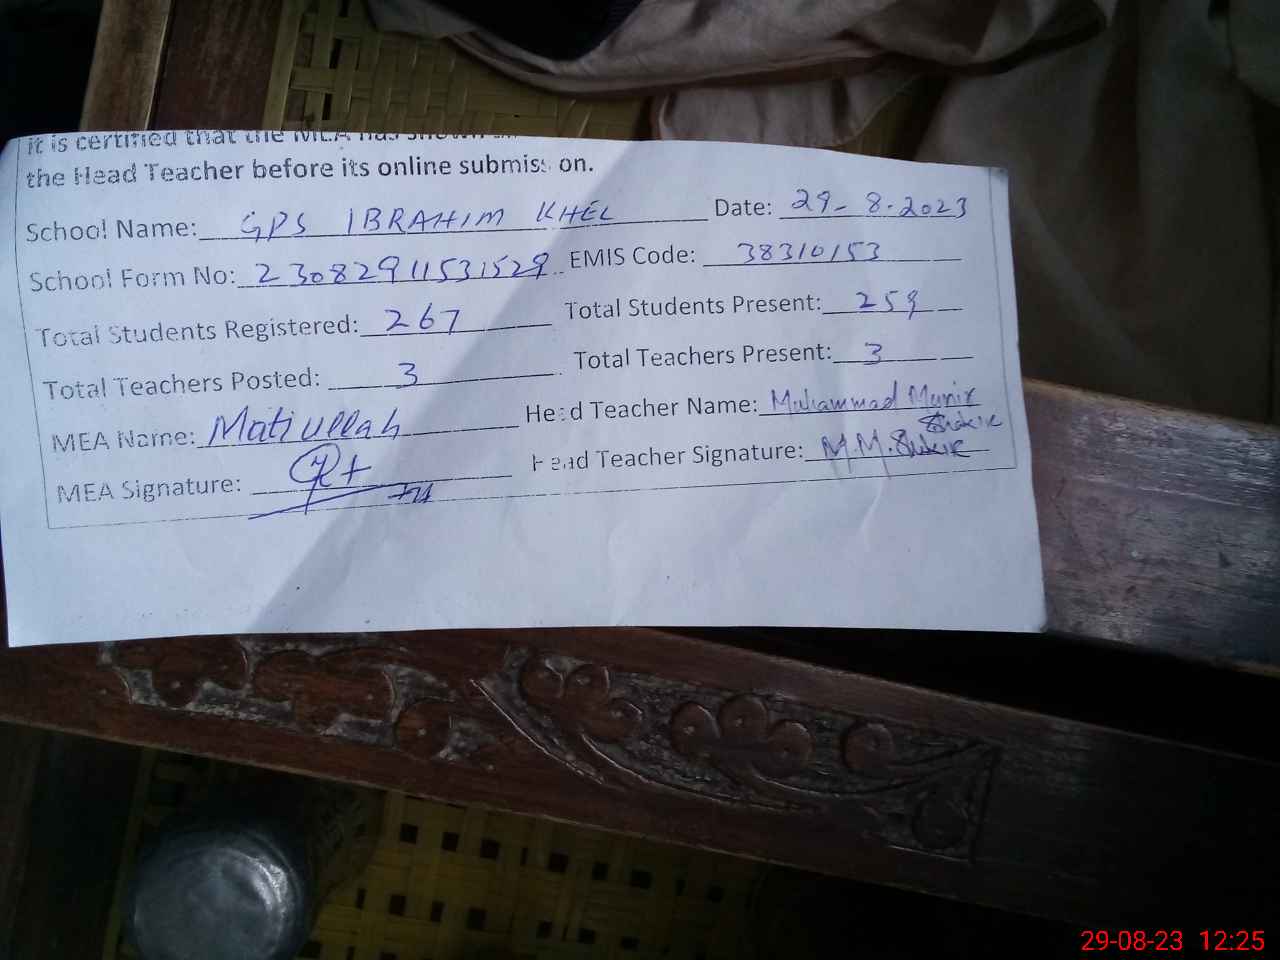 it is certified that the MEA has shown
the Head Teacher before its online submission.
School Name: GPS IBRAHIM KHEL Date: 29-8-2023
School Form No: 23082911531529 EMIS Code: 38310153
Total Students Registered: 267 Total Students Present: 259
Total Teachers Posted: 3 Total Teachers Present: 3
MEA Name: Matiullah Head Teacher Name: Muhammad Munir
Shakir
MEA Signature: Head Teacher Signature: M.M. Shakir
29-08-23 12:25